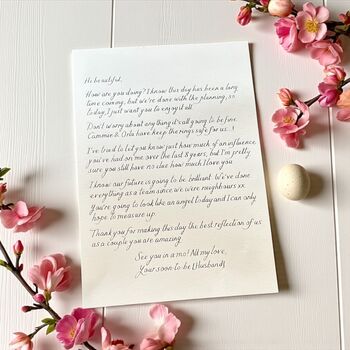 Hi beautiful,
How are you doing? I know this day has been a long
time coming, but we're done with the planning, so
today, I just want you to enjoy it all.
Don't worry about anything it call going to be fine.
Cammie & Orla have keep the rings safe for us..!
I've tried to let you know just how much of an influence
you've had on me over the last 8 years, but I'm pretty
sure you still have no clue how much I love you.
I know our future is going to be brilliant. We've done
everything as a team since we were neighbours xx
You're going to look like an angel today and I can only
hope to measure up.
Thank you for making this day the best reflection of us
as a couple you are amazing.
See you in a mo! All my love,
Your soon to be [Husband]